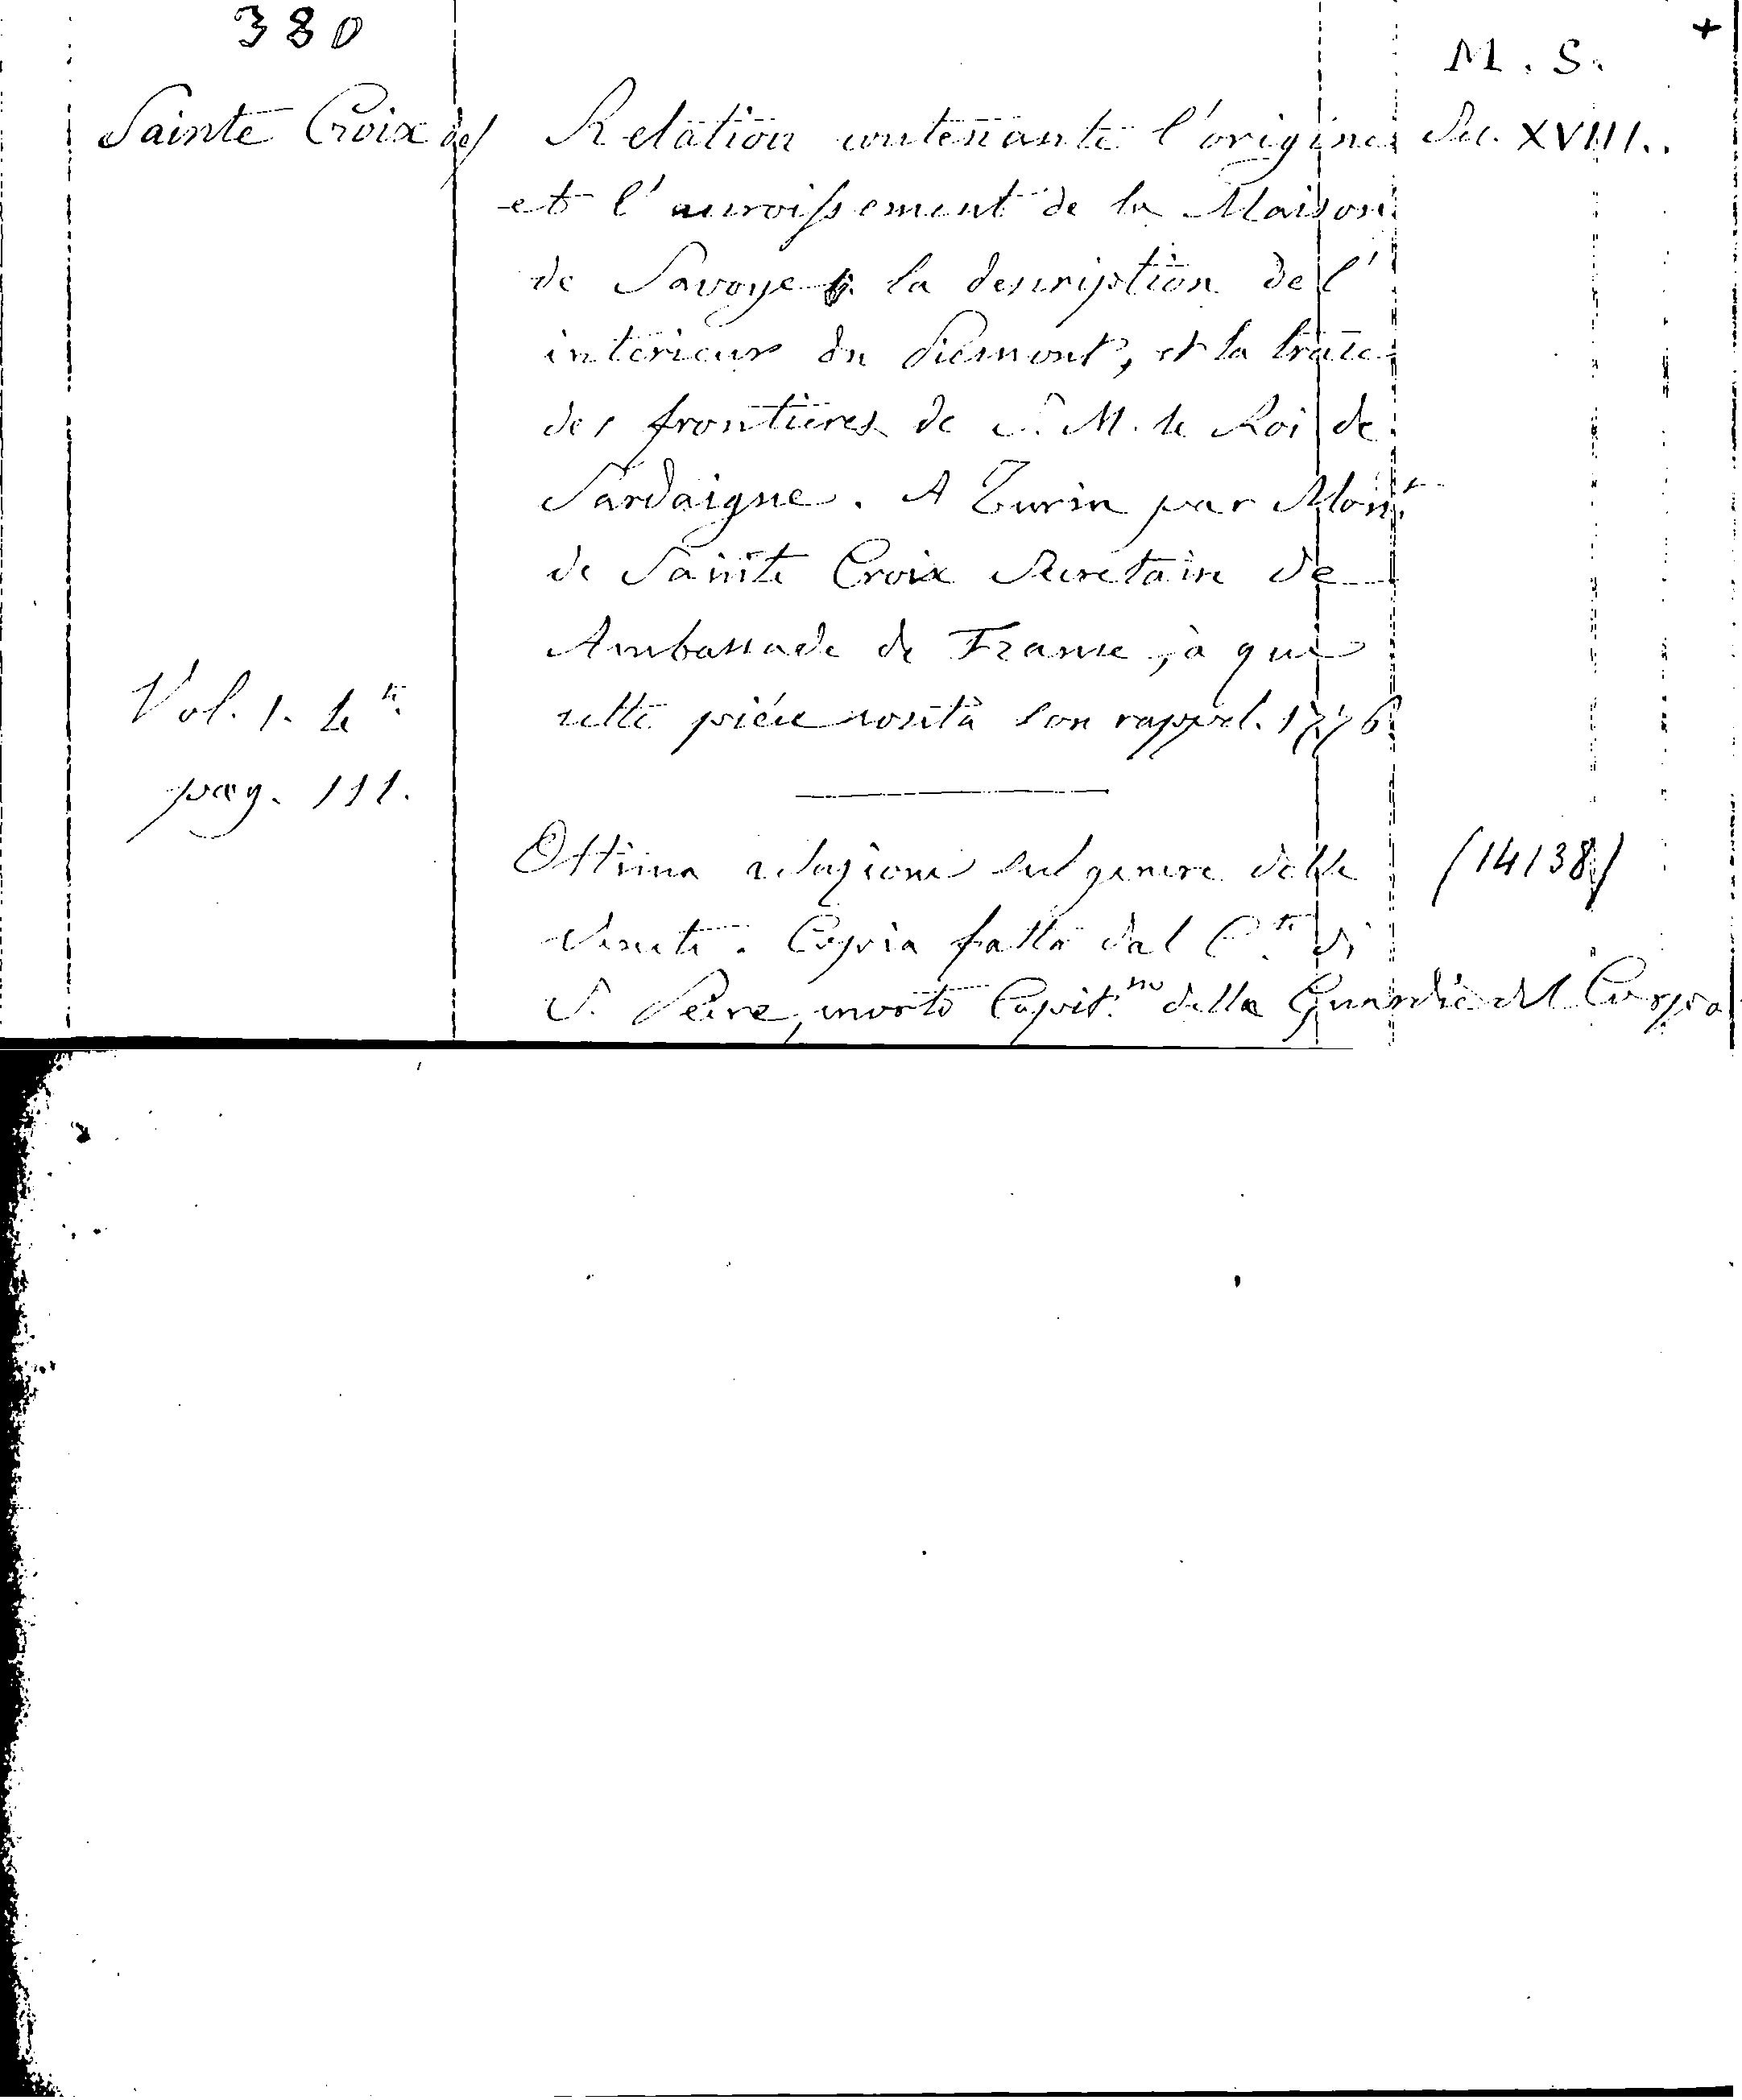 380
M. S. +
Sainte Croix de/
Relation contenante l'origine
Sec. XVIII..
et l'accroissement de la Maison
de Savoye la description de l'
interieur du Piemont, et la trace
des frontieres de S. M. le Roi de
Sardaigne. A Turin par Mon.r
de Sainte Croix Secretaire de
Ambassade de France, à qui
cette piéce costà son rappel. 1776
Vol. 1. le
pag. 111.
Ottima relazione sul genere delle
(14138)
Venete. Copia fatta dal C.te di
S. Peire, morto Capit.no della Guardie del Corpo